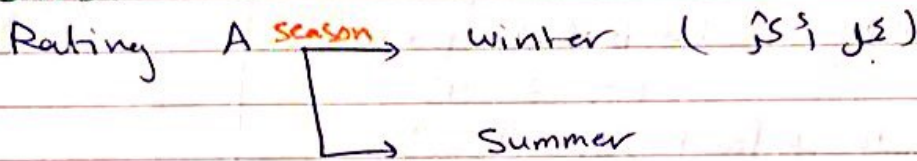 Rating A season → winter ( أكثر )
→ Summer